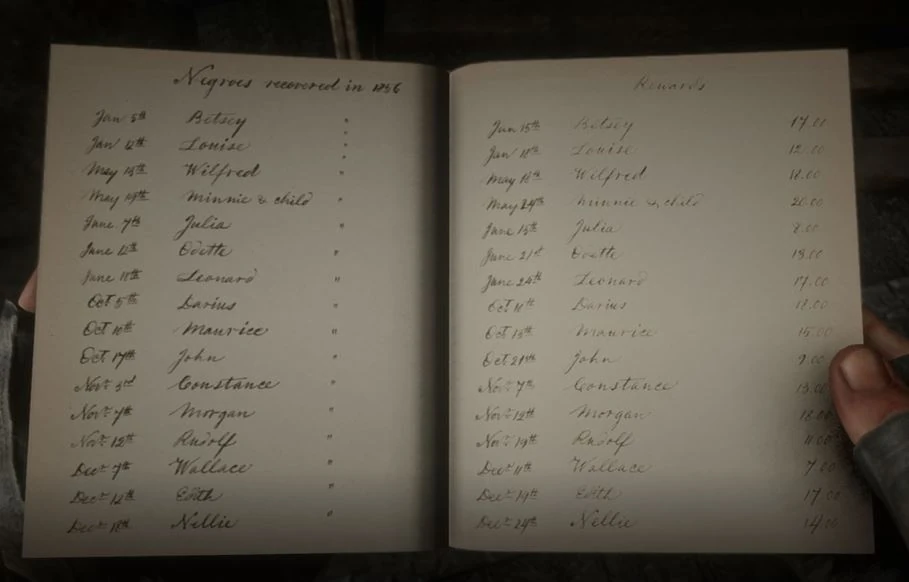 Negroes recovered in 1856
Jan 5th Betsey "
Jan 12th Louise "
May 15th Wilfred "
May 19th Minnie & child "
June 7th Julia "
June 12th Odette "
June 18th Leonard "
Oct 5th Darius "
Oct 10th Maurice "
Oct 17th John "
Nov. 3rd Constance "
Nov. 7th Morgan
Nov. 12th Rudolf "
Dec. 7th Wallace "
Dec. 12th Edith "
Dec. 18th Nellie "
Rewards
Jan 15th Betsey 17.00
Jan 18th Louise 12.00
May 18th Wilfred 18.00
May 24th Minnie & child 20.00
June 15th Julia 8.00
June 21st Odette 13.00
June 24th Leonard 17.00
Oct Darius 18.00
Oct 15th Maurice 15.00
Oct 21st John 9.00
Nov. 7th Constance 13.00
Nov. 12th Morgan
Nov. 19th Rudolf
Dec. 11th Wallace 7.00
Dec. 19th Edith 17.00
Dec. 24th Nellie